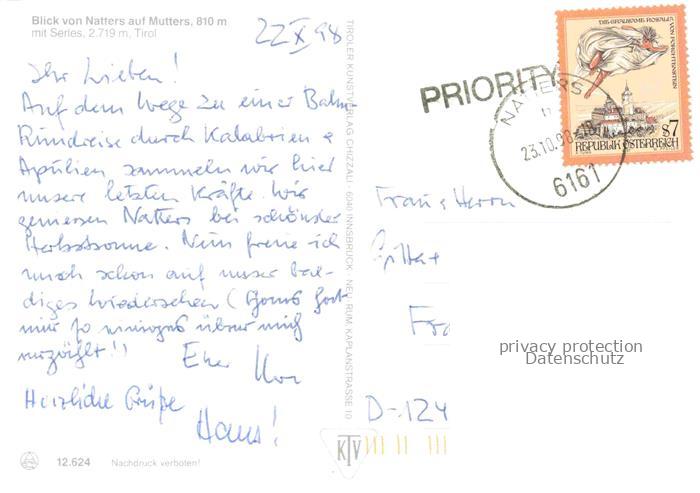 Blick von Natters auf Mutters, 810 m
mit Serles, 2.719 m, Tirol
22 X 98
Ihr Lieben!
Auf dem Wege zu einer Bahn-
Rundreise durch Kalabrien &
Apulien sammeln wir hier
unsere letzten Kräfte. Wir
geniessen Natters bei schönster
Herbstsonne. Nun freue ich
mich schon auf unser bal-
diges Wiedersehen (
mir so über mich
erzählt!)
Euer
Herzliche Grüße
Hans!
12.624 Nachdruck verboten!
TIROLER KUNSTVERLAG CHIZZALI · 6040 INNSBRUCK - NEU RUM, KAPLANSTRASSE 10
KTV
PRIORITY
NATTERS
23.10.98
6161
DIE GRAUSAME ROSALIA
VON FORCHTENSTEIN
S7
REPUBLIK ÖSTERREICH
Frau & Herrn
D-124
privacy protection
Datenschutz